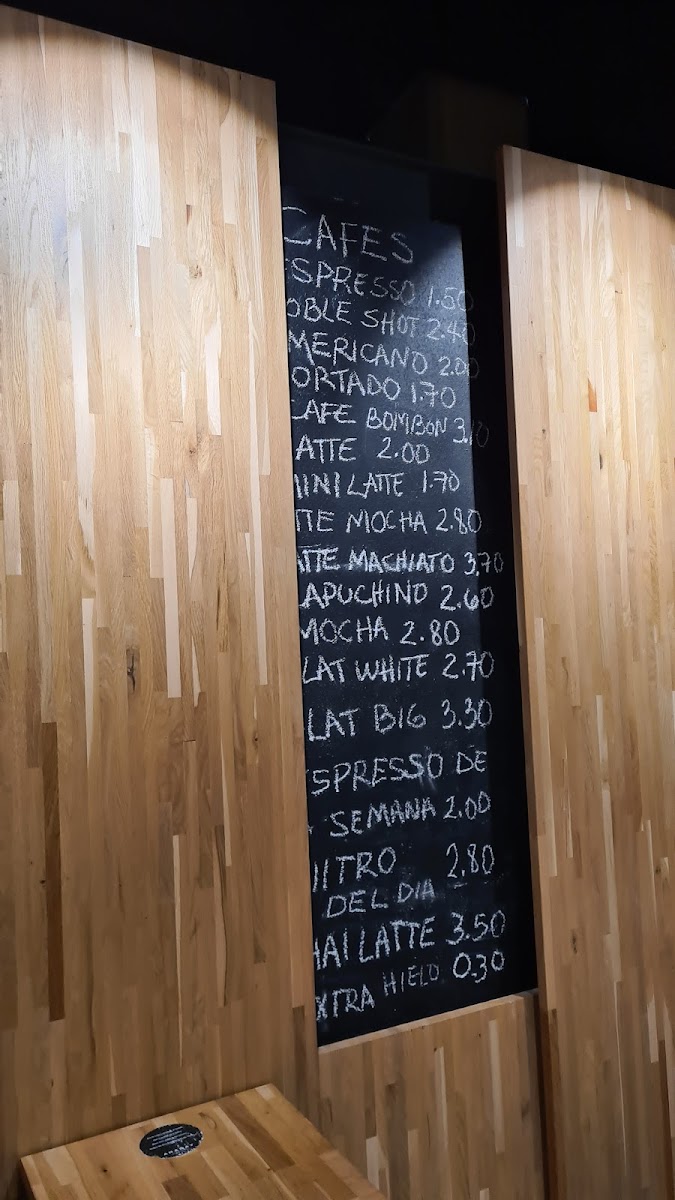 CAFES
ESPRESSO 1.50
OBLE SHOT 2.40
MERICANO 2.00
ORTADO 1.70
CAFE BOMBON 3.10
ATTE 2.00
MINI LATTE 1.70
TTE MOCHA 2.80
ATTE MACHIATO 3.70
CAPUCHINO 2.60
MOCHA 2.80
LAT WHITE 2.70
LAT BIG 3.30
ESPRESSO DE
SEMANA 2.00
NITRO 2.80
DEL DIA
HAI LATTE 3.50
XTRA HIELO 0.30